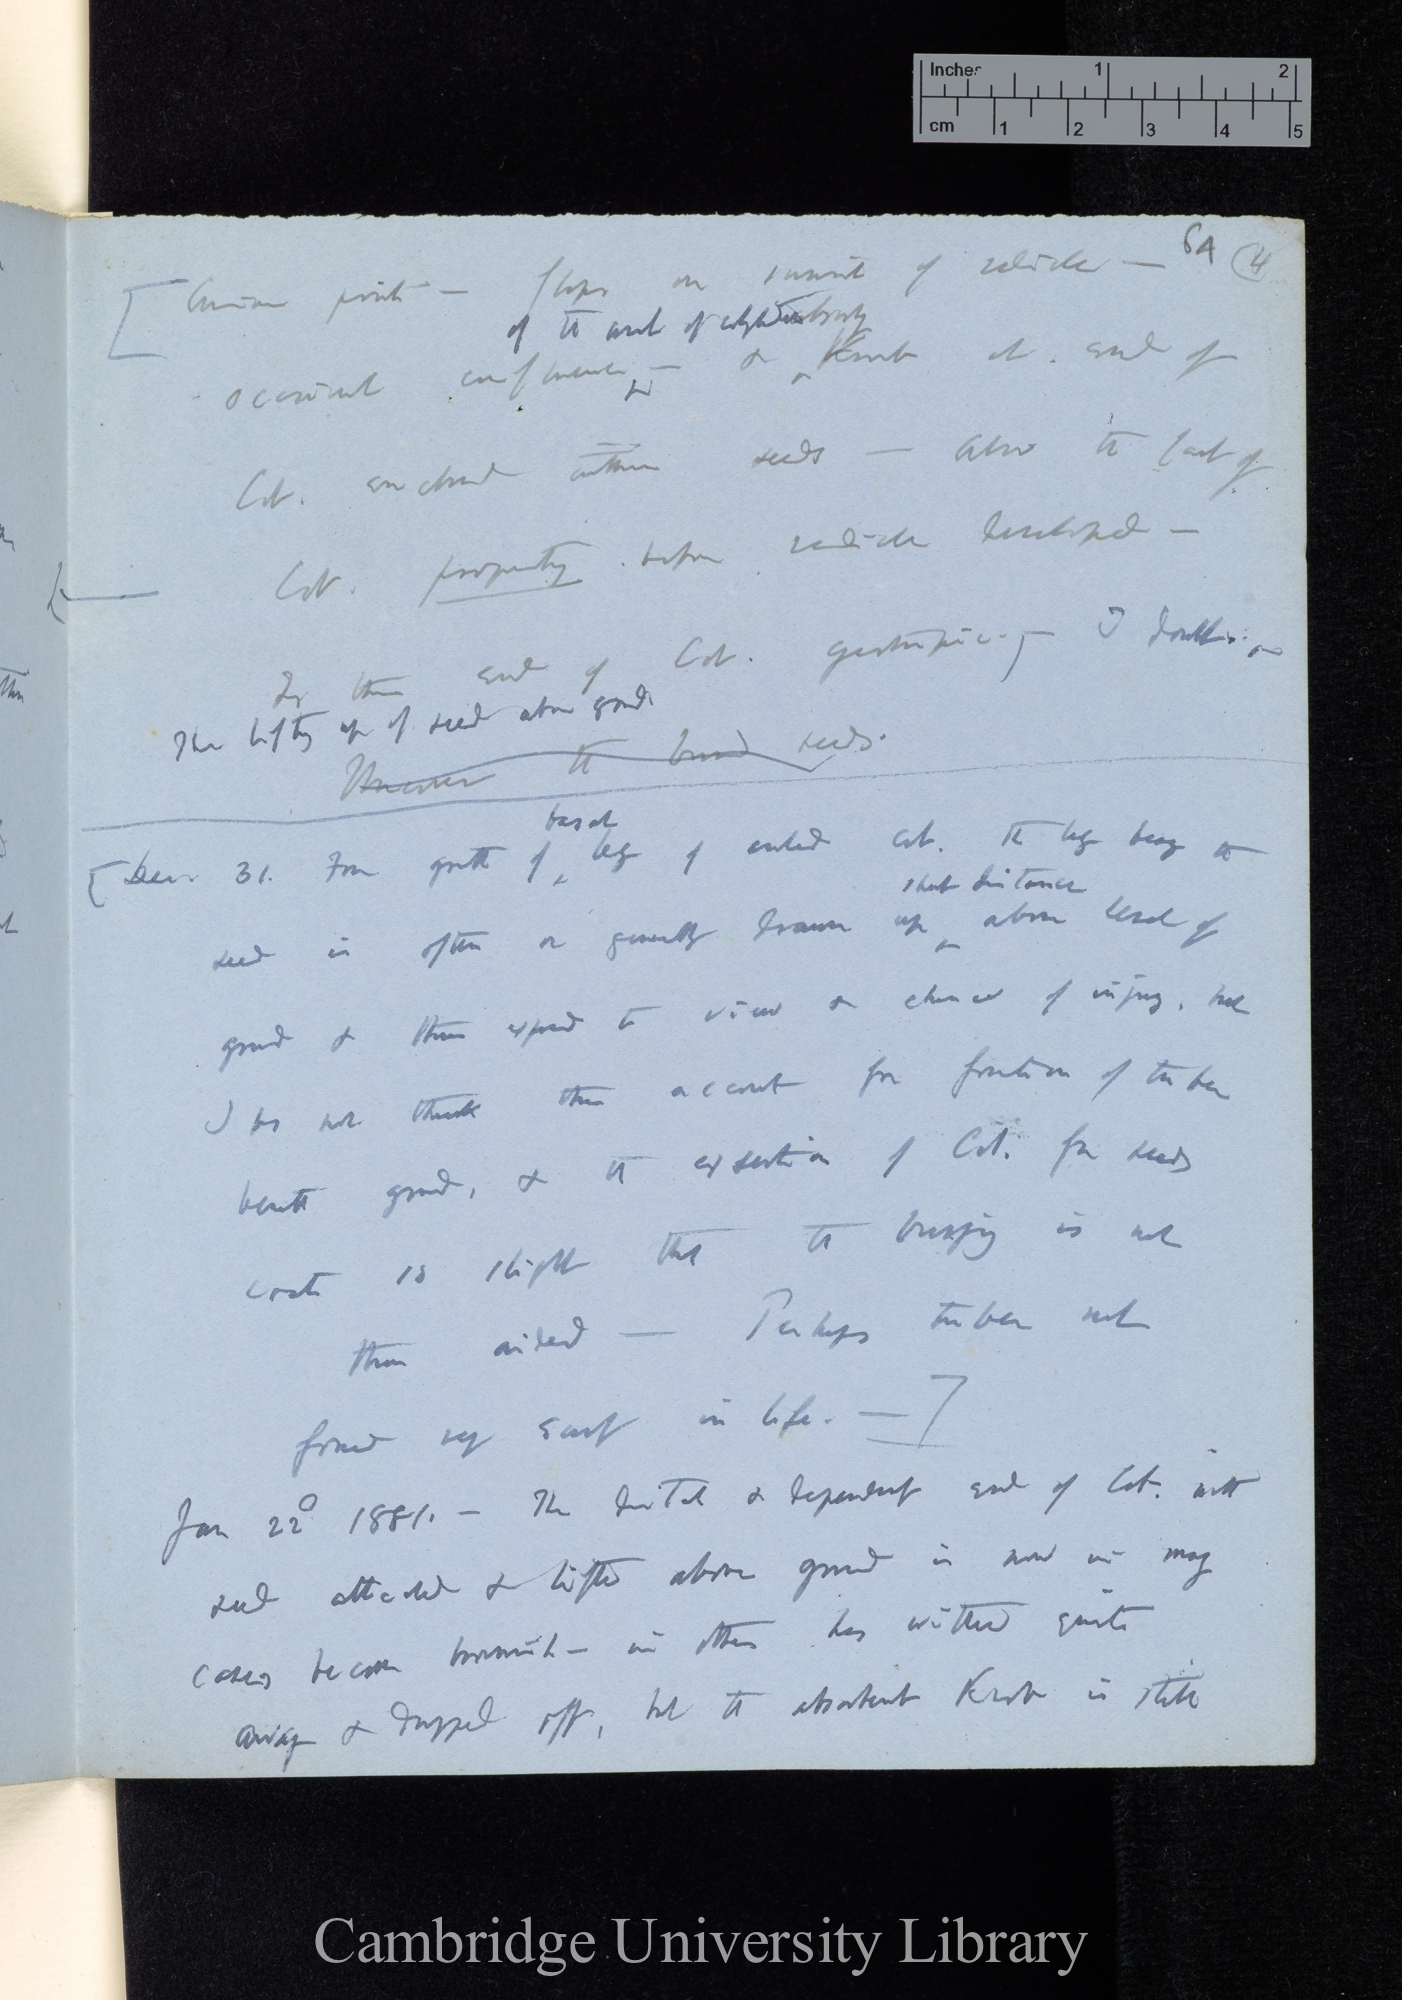 Inches 1 2
cm 1 2 3 4 5
64 (4
[ Curious points — flaps on summit of radicle —
of the arch of cotyledon
occasional — & Knob at end of
Cot. enclosed within seeds — Also the fact of
Cot. before radicle developed —
Is the end of Cot. geotropic. — I doubt
The lifting up of seed above ground
the buried seeds.
basal
[ Dec. 31. From growth of leg of arched Cot. the leg being the
short distance
seed is often or generally drawn up above level of
ground & thus exposed to view & chance of injury. but
I do not think this account for formation of tuber
beneath ground, & the exsertion of Cot. from seeds
coats is slight that the burying is not
thus aided — Perhaps tuber not
formed very early in life. — ]
Jan 22d 1881. — The distal & dependent end of Cot. with
seed attached & lifted above ground is now in many
cases become brownish — in others has withered quite
away & dropped off, but the absorbent Knob is still
Cambridge University Library